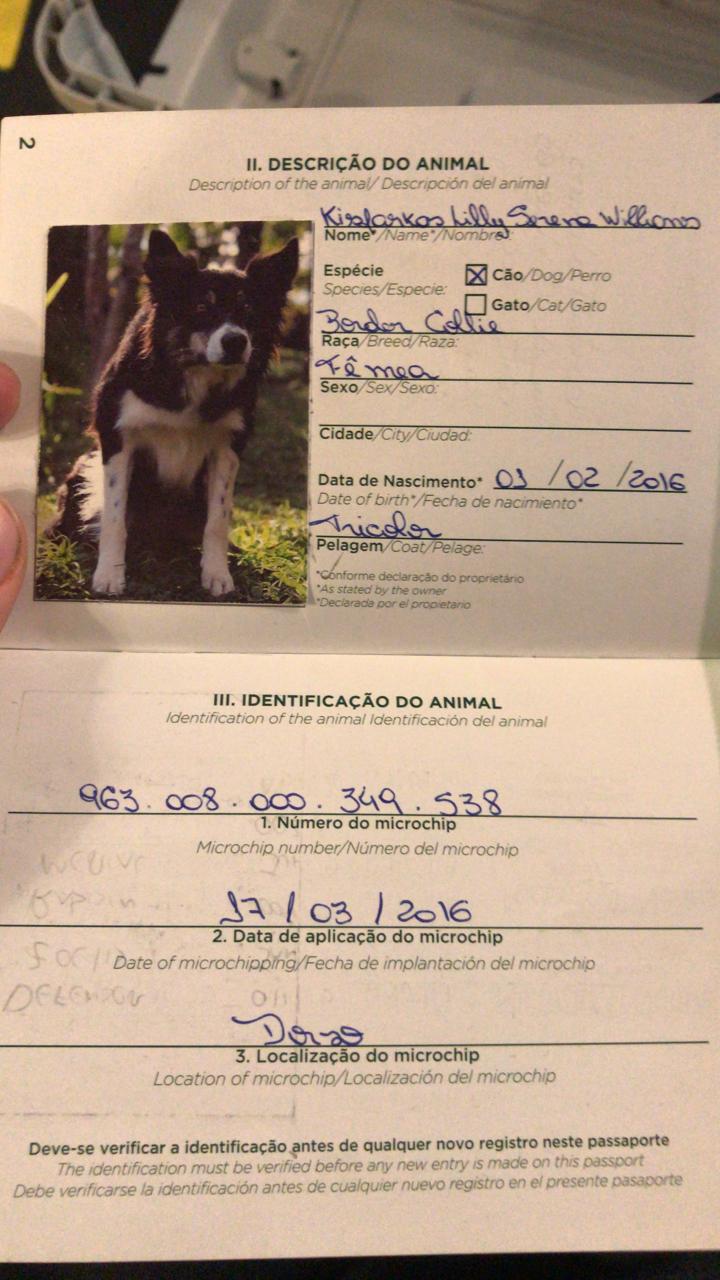 2
II. DESCRIÇÃO DO ANIMAL
Description of the animal/ Descripción del animal
Lilly Serena Williams
Nome*/Name*/Nombre*:
Espécie
Species/Especie:
Cão/Dog/Perro
Gato/Cat/Gato
Border Collie
Raça/Breed/Raza:
Fêmea
Sexo/Sex/Sexo:
Cidade/City/Ciudad:
Data de Nascimento* 01/02/2016
Date of birth*/Fecha de nacimiento*
Tricolor
Pelagem/Coat/Pelage:
*Conforme declaração do proprietário
*As stated by the owner
*Declarada por el propietario
III. IDENTIFICAÇÃO DO ANIMAL
Identification of the animal Identificación del animal
963.008.000.349.538
1. Número do microchip
Microchip number/Número del microchip
17/03/2016
2. Data de aplicação do microchip
Date of microchipping/Fecha de implantación del microchip
Dorso
3. Localização do microchip
Location of microchip/Localización del microchip
Deve-se verificar a identificação antes de qualquer novo registro neste passaporte
The identification must be verified before any new entry is made on this passport
Debe verificarse la identificación antes de cualquier nuevo registro en el presente pasaporte